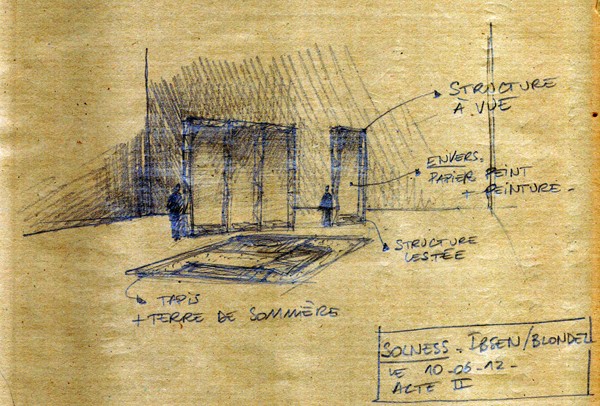 STRUCTURE
À VUE
ENVERS.
PAPIER PEINT
+ PEINTURE -
STRUCTURE
LESTÉE
TAPIS
+ TERRE DE SOMMIÈRE
SOLNESS - IBSEN/BLONDEL
LE 10-05-12-
ACTE II